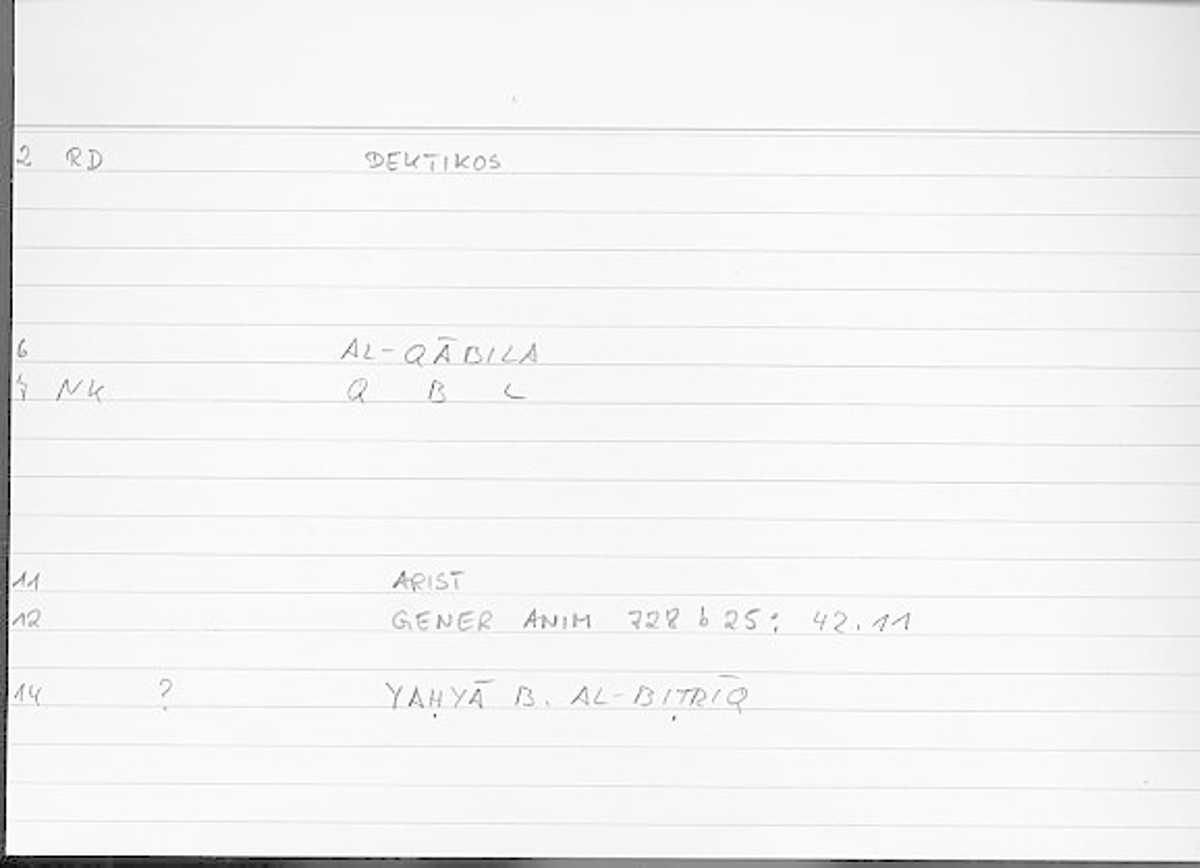 2 RD DEKTIKOS
6 AL-QĀBILA
7 NK Q B L
11 ARIST
12 GENER ANIM 728 b 25; 42.11
14 ? YAḤYĀ B. AL-BIṬRĪQ